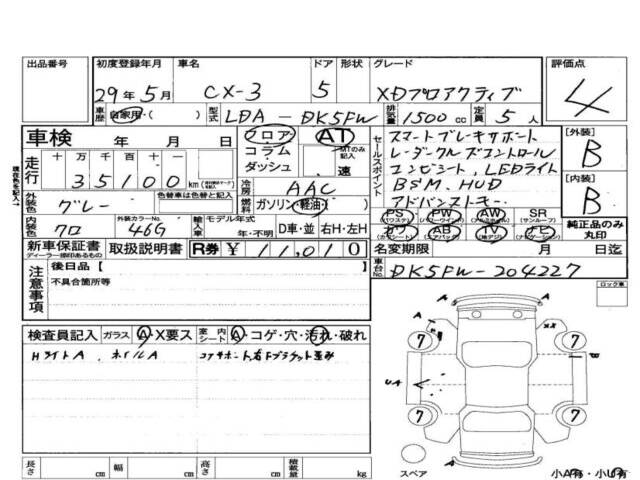 出品番号 初度登録年月 車名 ドア 形状 グレード 評価点
29年5月 CX-3 5 XDプロアクティブ 4
車歴 自家用・( ) 型式 LDA-DK5FW 排気量 1500cc 定員 5人
車検 年 月 日 フロア AT セールスポイント スマートブレーキサポート [外装]
コラム MTのみ記入 レーダークルーズコントロール B
走行 十万 万 千 百 十 ダッシュ 速 コンビシート、LEDライト
35100 km 冷房 AAC BSM、HUD [内装]
外装色 グレー 色替車は色替と記入 燃料 ガソリン・軽油・( ) アドバンストキー B
内装色 クロ 外装カラーNo. 46G 輸入車 モデル年式 PS PW AW SR
年・不明 D車・並 右H・左H カワ AB TV ナビ 純正品のみ丸印
新車保証書 取扱説明書 R券 ¥11,010 名変期限 月 日迄
ディーラー捺印あるもの
注意事項 後日品【 】 車台No. DK5FW-204227
不具合箇所等 ロック車
検査員記入 ガラス A・X要ス 室内シート A・コゲ・穴・汚れ・破れ
HライトA、ホイルA
A A
7 7
UA
7 7
長さ cm 幅 cm 高さ cm 積載量 kg スペア 小A有・小U有